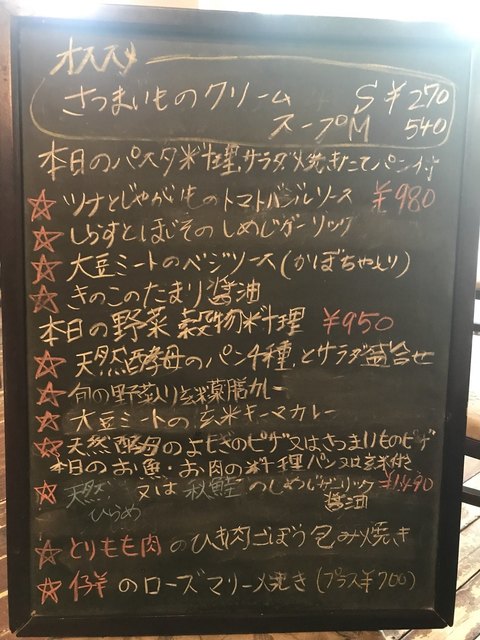 オススメ
さつまいものクリーム S ¥270
スープM 540
本日のパスタ料理、サラダ、焼きたてパン付
☆ ツナとじゃがいものトマトバジルソース ¥980
☆ しらすとほじそのしめじガーリック
☆ 大豆ミートのベジソース(かぼちゃ入り)
☆ きのこのたまり醤油
本日の野菜穀物料理 ¥950
☆ 天然酵母のパン4種、とサラダ盛合せ
☆ 旬の野菜入り玄米薬膳カレー
☆ 大豆ミートの玄米キーマカレー
☆ 天然酵母のよもぎのピザ又はさつまいものピザ
本日のお魚・お肉の料理パン又は玄米付
☆ 天然 又は 秋鮭 のしめじガーリック ¥1490
ひらめ 醤油
☆ とりもも肉のひき肉ごぼう包み焼き
☆ 仔羊のローズマリー焼き(プラス¥700)